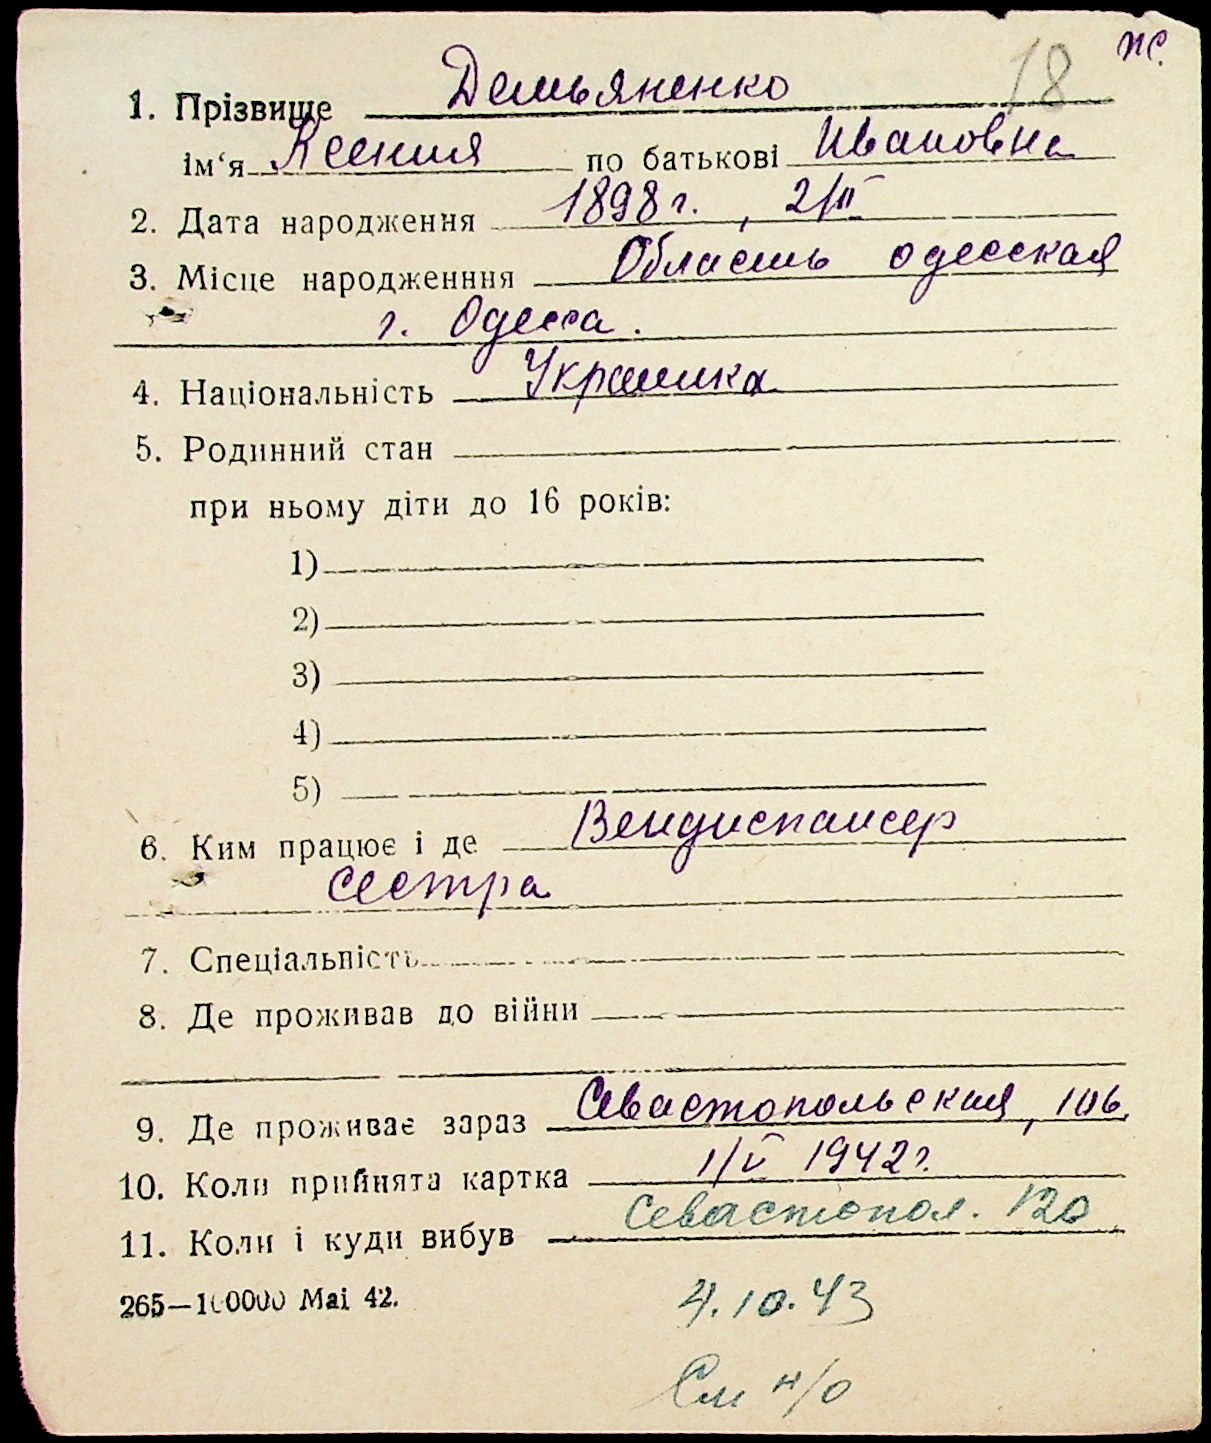 18 ж.
1. Прізвище Демьяненко
ім'я Ксения по батькові Ивановна
2. Дата народження 1898 г., 2/II
3. Місце народженння Область одесская
г. Одесса.
4. Національність Украинка
5. Родинний стан
при ньому діти до 16 років:
1)
2)
3)
4)
5)
6. Ким працює і де Вендиспансер
сестра
7. Спеціальність
8. Де проживав до війни
9. Де проживає зараз Севастопольская, 106
10. Коли прийнята картка 1/V 1942 г.
11. Коли і куди вибув Севастопол. 120
265—100000 Маі 42.
4.10.43
См н/о